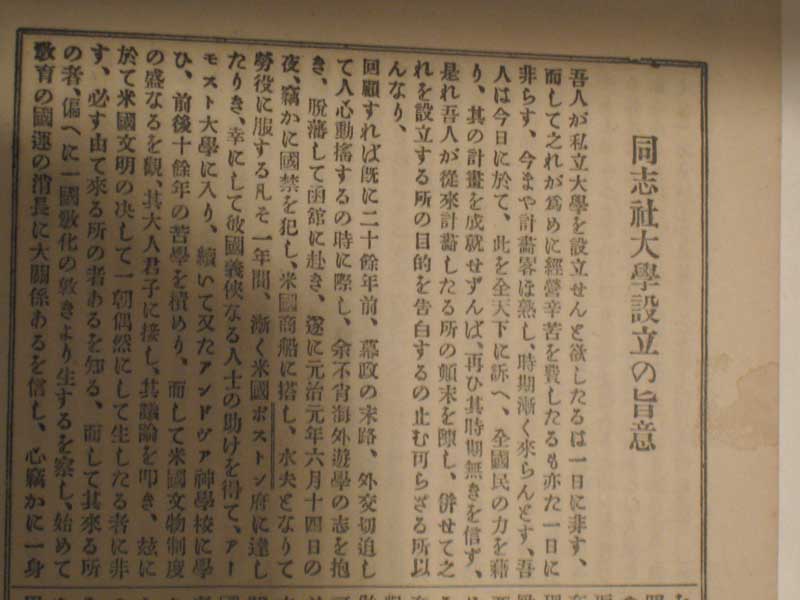 同志社大學設立の旨意
吾人が私立大學を設立せんと欲したるは一日に非す、
而して之れが爲めに經營辛苦を費したるも亦た一日に
非らす、今まや計畫畧ぼ熟し、時期漸く來らんとす、吾
人は今日に於て、此を全天下に訴へ、全國民の力を藉
り、其の計畫を成就せずんば、再ひ其時期無きを信ず、
是れ吾人が從來計畫したる所の顛末を陳し、併せて之
れを設立する所の目的を告白するの止む可らざる所以
んなり、
回顧すれば既に二十餘年前、幕政の末路、外交切迫し
て人心動搖するの時に際し、余不肖海外遊學の志を抱
き、脫藩して函館に赴き、遂に元治元年六月十四日の
夜、竊かに國禁を犯し、米國商船に搭し、水夫となりて
勞役に服する凡そ一年間、漸く米國ボストン府に達し
たりき、幸にして彼國義俠なる人士の助けを得て、アー
モスト大學に入り、續いて又たアンドヴァ神學校に學
ひ、前後十餘年の苦學を積めり、而して米國文物制度
の盛なるを觀、其大人君子に接し、其議論を叩き、玆に
於て米國文明の决して一朝偶然にして生したる者に非
す、必す由て來る所の者あるを知る、而して其來る所
の者、偏へに一國敎化の敦きより生するを察し、始めて
敎育の國運の消長に大關係あるを信し、心竊かに一身